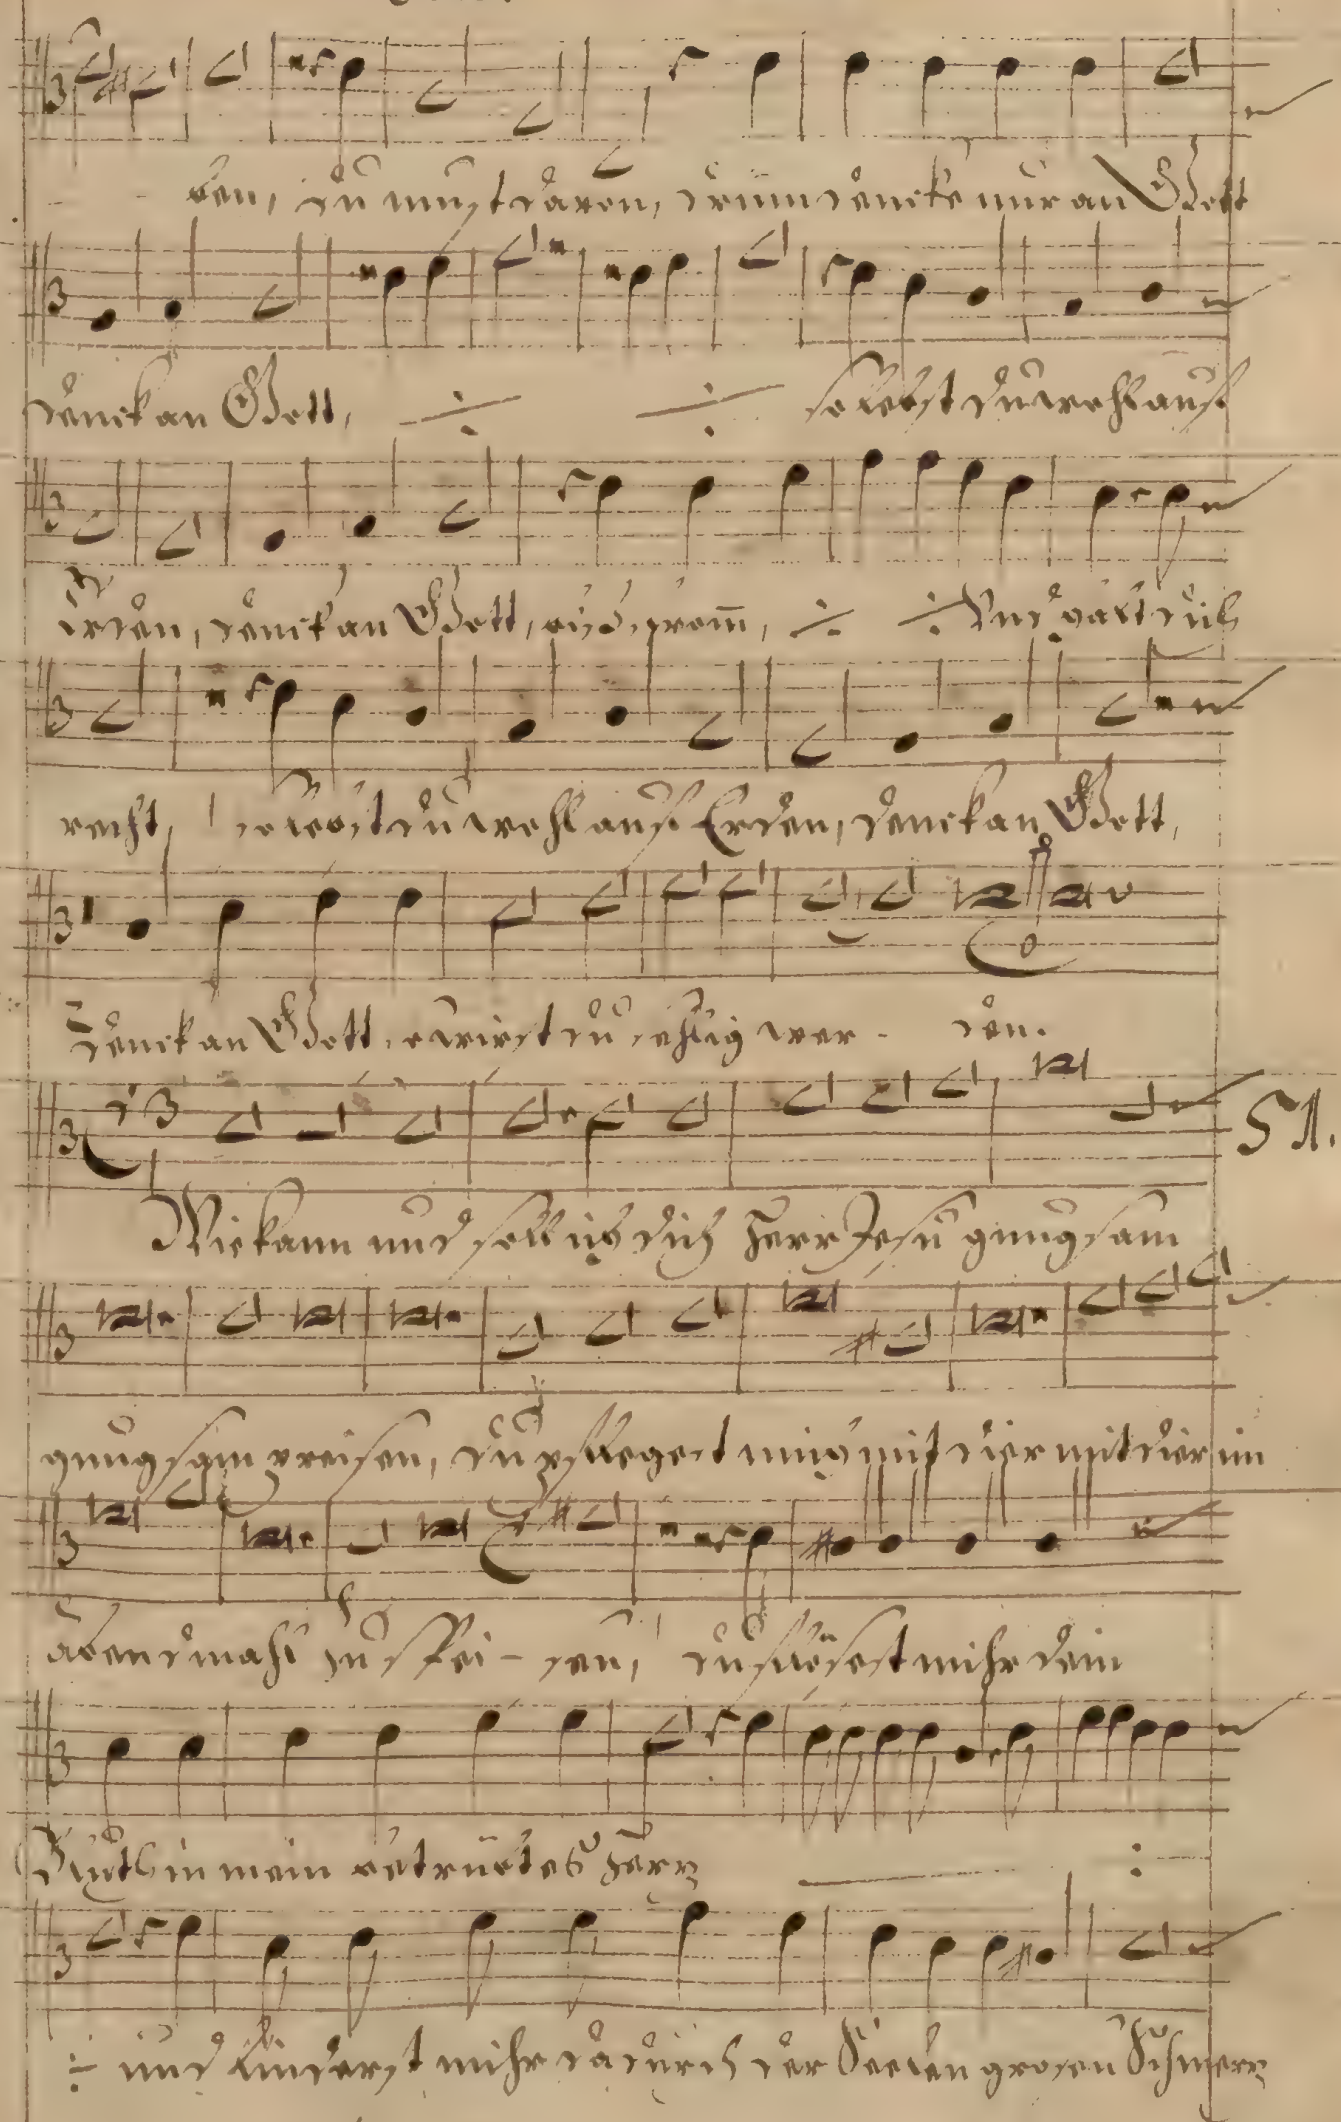 ben, du must davon, drum dencke nur an Gott
denck an Gott, so lebst du wohl auf
Erden, denck an Gott, from, Und halt dich
recht, so lebst du wohl auf Erden, denck an Gott,
denck an Gott, so wirst du sehlig wer - den.
51.
Wie kann und soll ich dich Herr Jesu gnugsam
gnugsam preisen, du pflegest mich mit dier mit dier im
abendmahl zu spei - sen, du flösest mihr dein
Bluth in mein betrübtes Hertz
und linderst mihr dadurch der Seelen grosen Schmertz